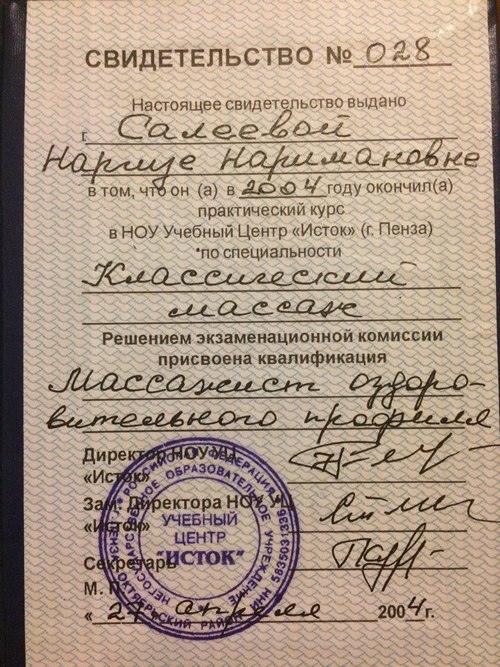 СВИДЕТЕЛЬСТВО № 028
Настоящее свидетельство выдано
г. Салеевой
Наргизе Наримановне
в том, что он (а) в 2004 году окончил(а)
практический курс
в НОУ Учебный Центр «Исток» (г. Пенза)
по специальности
Классический
массаж
Решением экзаменационной комиссии
присвоена квалификация
Массажист оздоро-
вительного профиля
Директор НОУ УЦ
«Исток»
Зам. Директора НОУ УЦ
«Исток»
Секретарь
М. П.
« 27 апреля 2004 г.
РОССИЙСКАЯ ФЕДЕРАЦИЯ
ОКТЯБРЬСКИЙ РАЙОН ИНН 5835031339
НЕГОСУДАРСТВЕННОЕ ОБРАЗОВАТЕЛЬНОЕ УЧРЕЖДЕНИЕ
УЧЕБНЫЙ
ЦЕНТР
"ИСТОК"